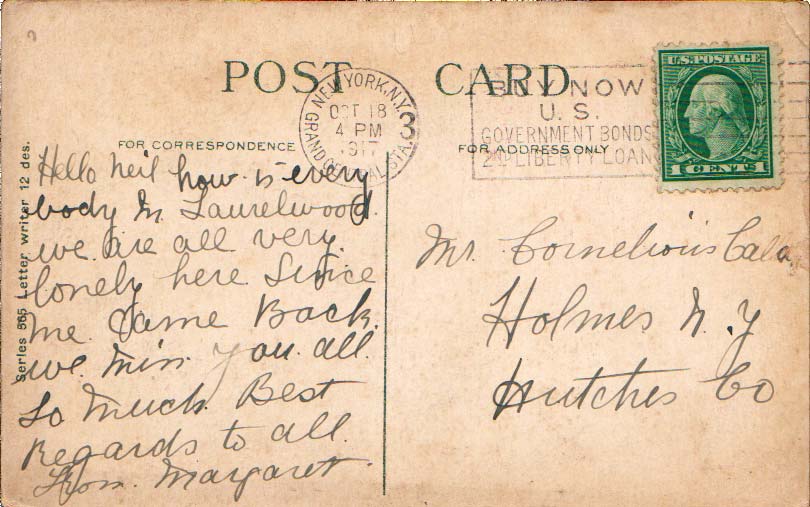 POST CARD
NEW YORK, N.Y.
OCT 18
4 PM
1917
GRAND CENTRAL STA.
3
BUY NOW
U.S.
GOVERNMENT BONDS
2ND LIBERTY LOAN
U.S. POSTAGE
1 CENTS 1
FOR CORRESPONDENCE
FOR ADDRESS ONLY
Series 565 Letter writer 12 des.
Hello Neil how is every
body in Laurelwood
we are all very
lonely here Since
we Came Back.
we miss you all
So Much. Best
Regards to all.
From Margaret.
Mr. Cornelious
Holmes N.Y
Hutches Co